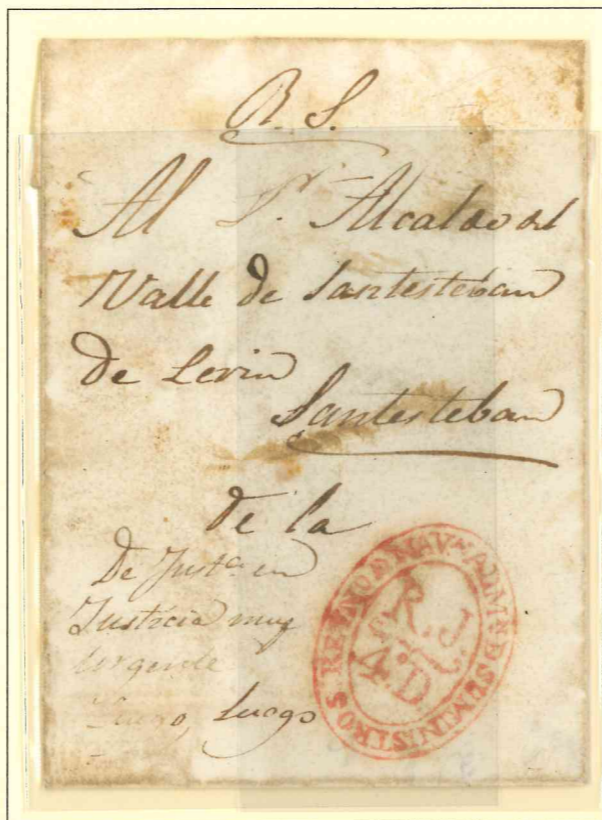 R. S.
Al Sr. Alcalde del
Valle de Santesteban
de Lerin
Santesteban
de la
De Justa. en
Justicia muy
Urgente
Luego, Luego
REYNO DE NAVA. ADMN. DE SUMINISTROS
R. J
4. D.